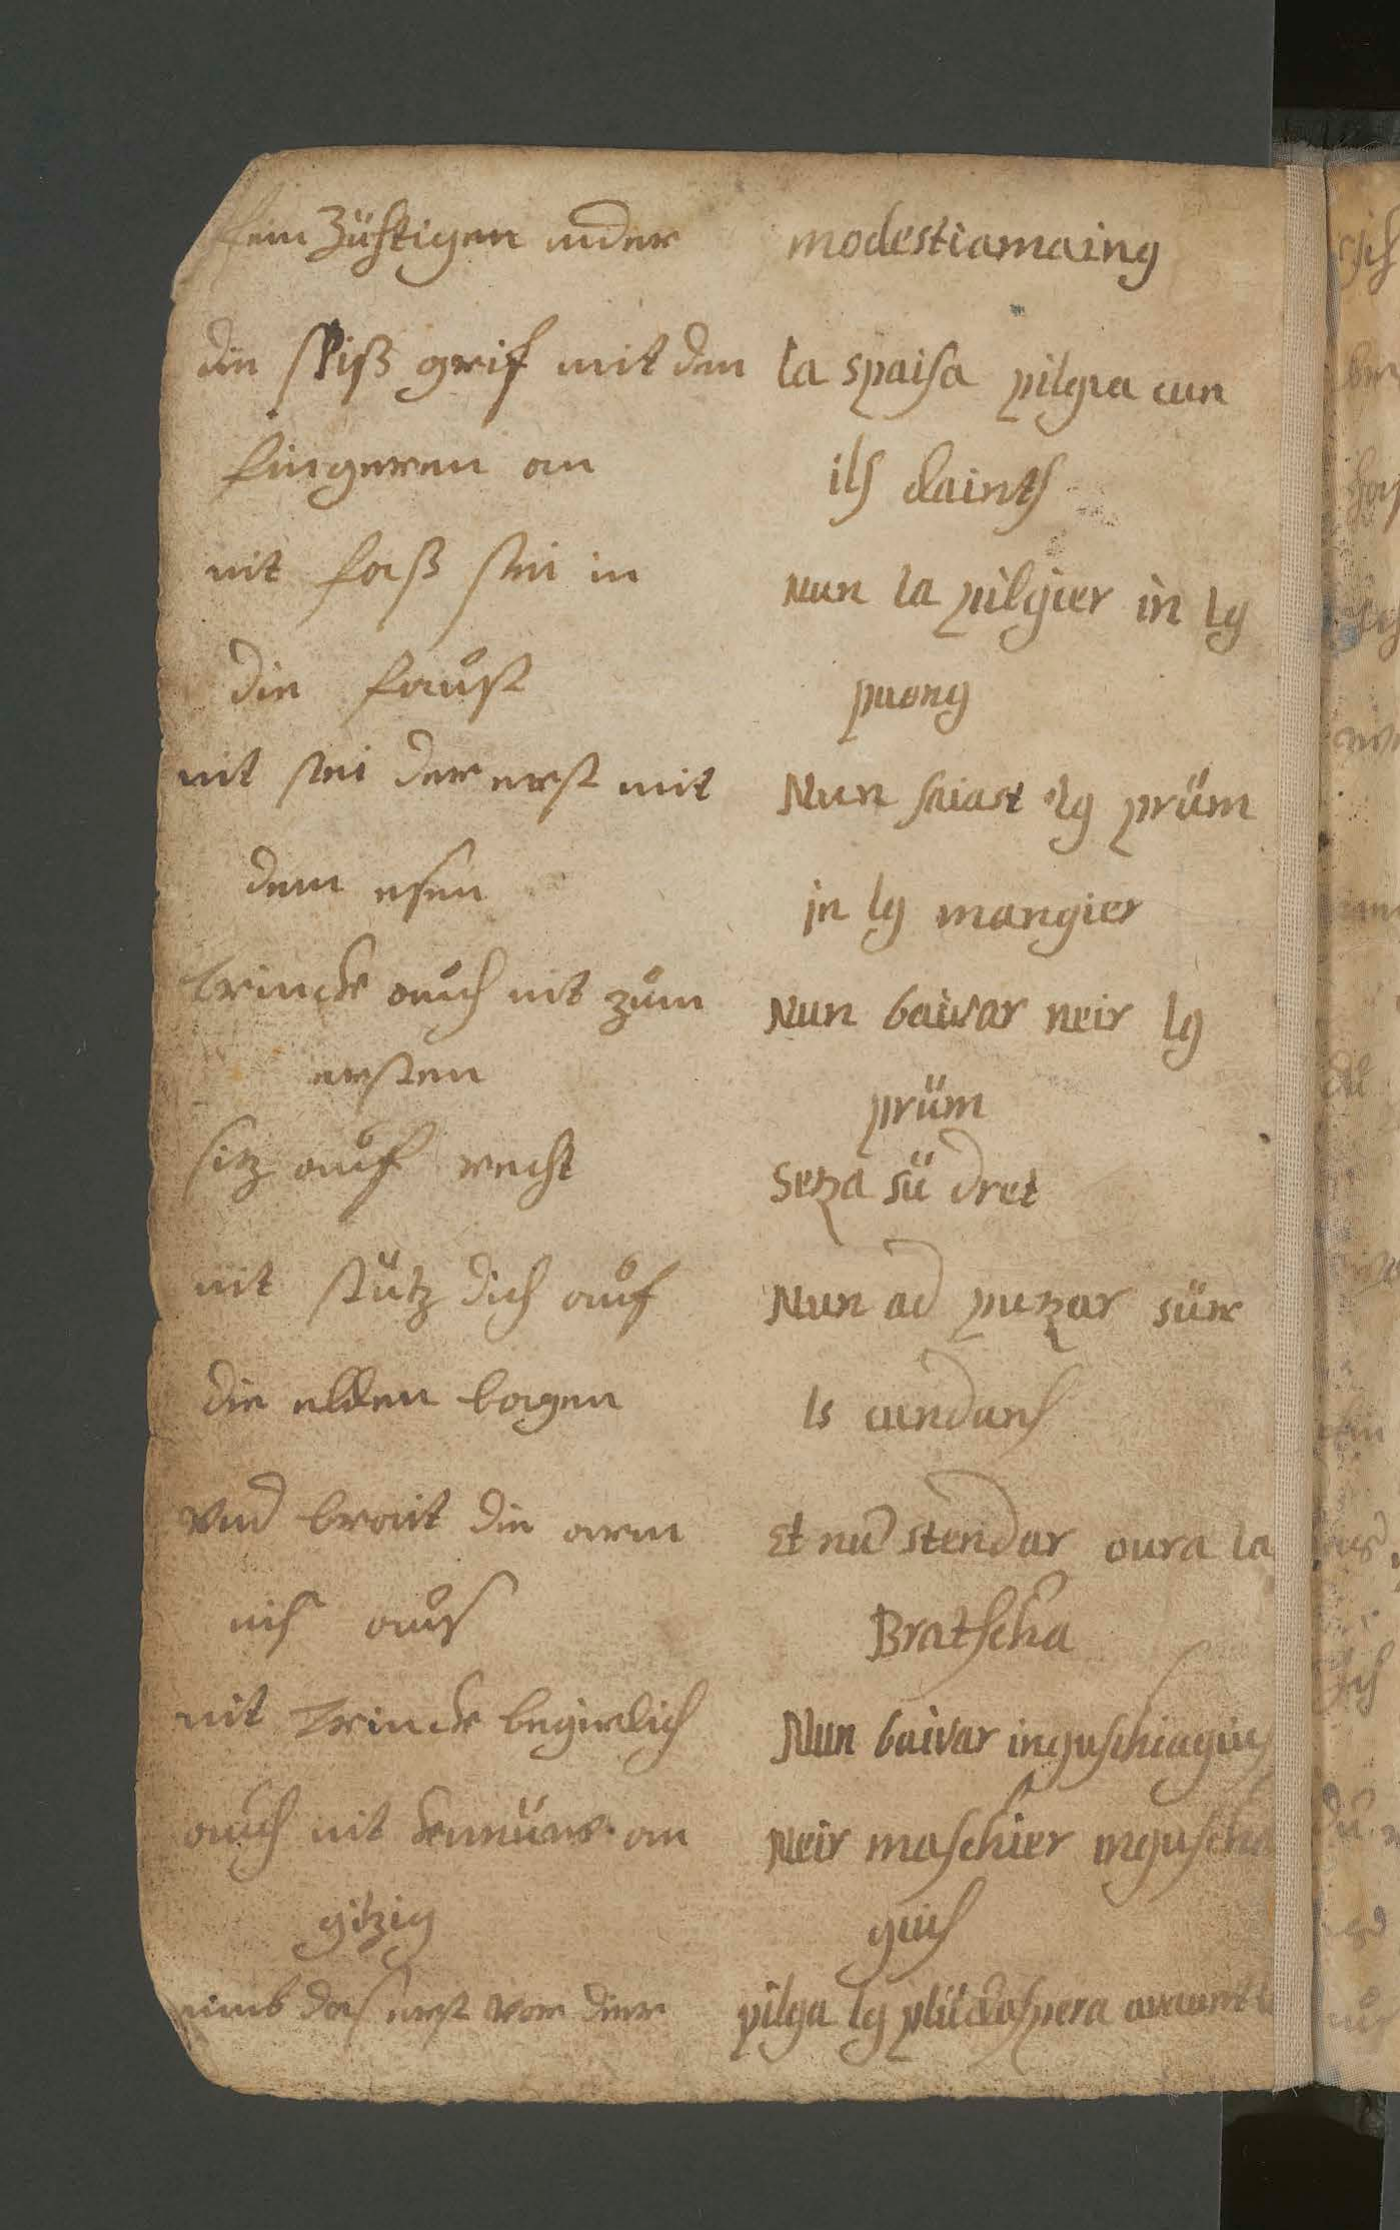 fein Züchtigen nider modestiamaing
die spiß grif mit den la spaisa pilgia cun
fingeren an ils daints
nit faß sei in Nun la pilgier in lg
die faust puong
nit sei der erst mit Nun saiast lg prüm
dem esen in lg mangier
trinck auch nit zum Nun baivar neir lg
ersten prüm
sitz auf recht Seza sü dret
nit stütz dich auf Nun ad puzar sün
die ellen bogen ls cunduns
Vnd brait die arm Et nũ stendar oura la
nit aus Bratscha
nit trinck begirlich Nun baivar inguschiagius
auch nit an Neir maschier inguscha
gitzig gius
nimb das erst vor dier pilga lg plü daspera avaunt